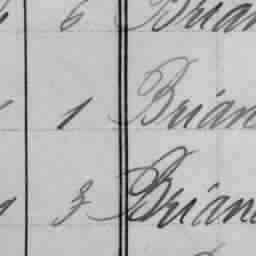 6 Brian
1 Brian
3 Brian